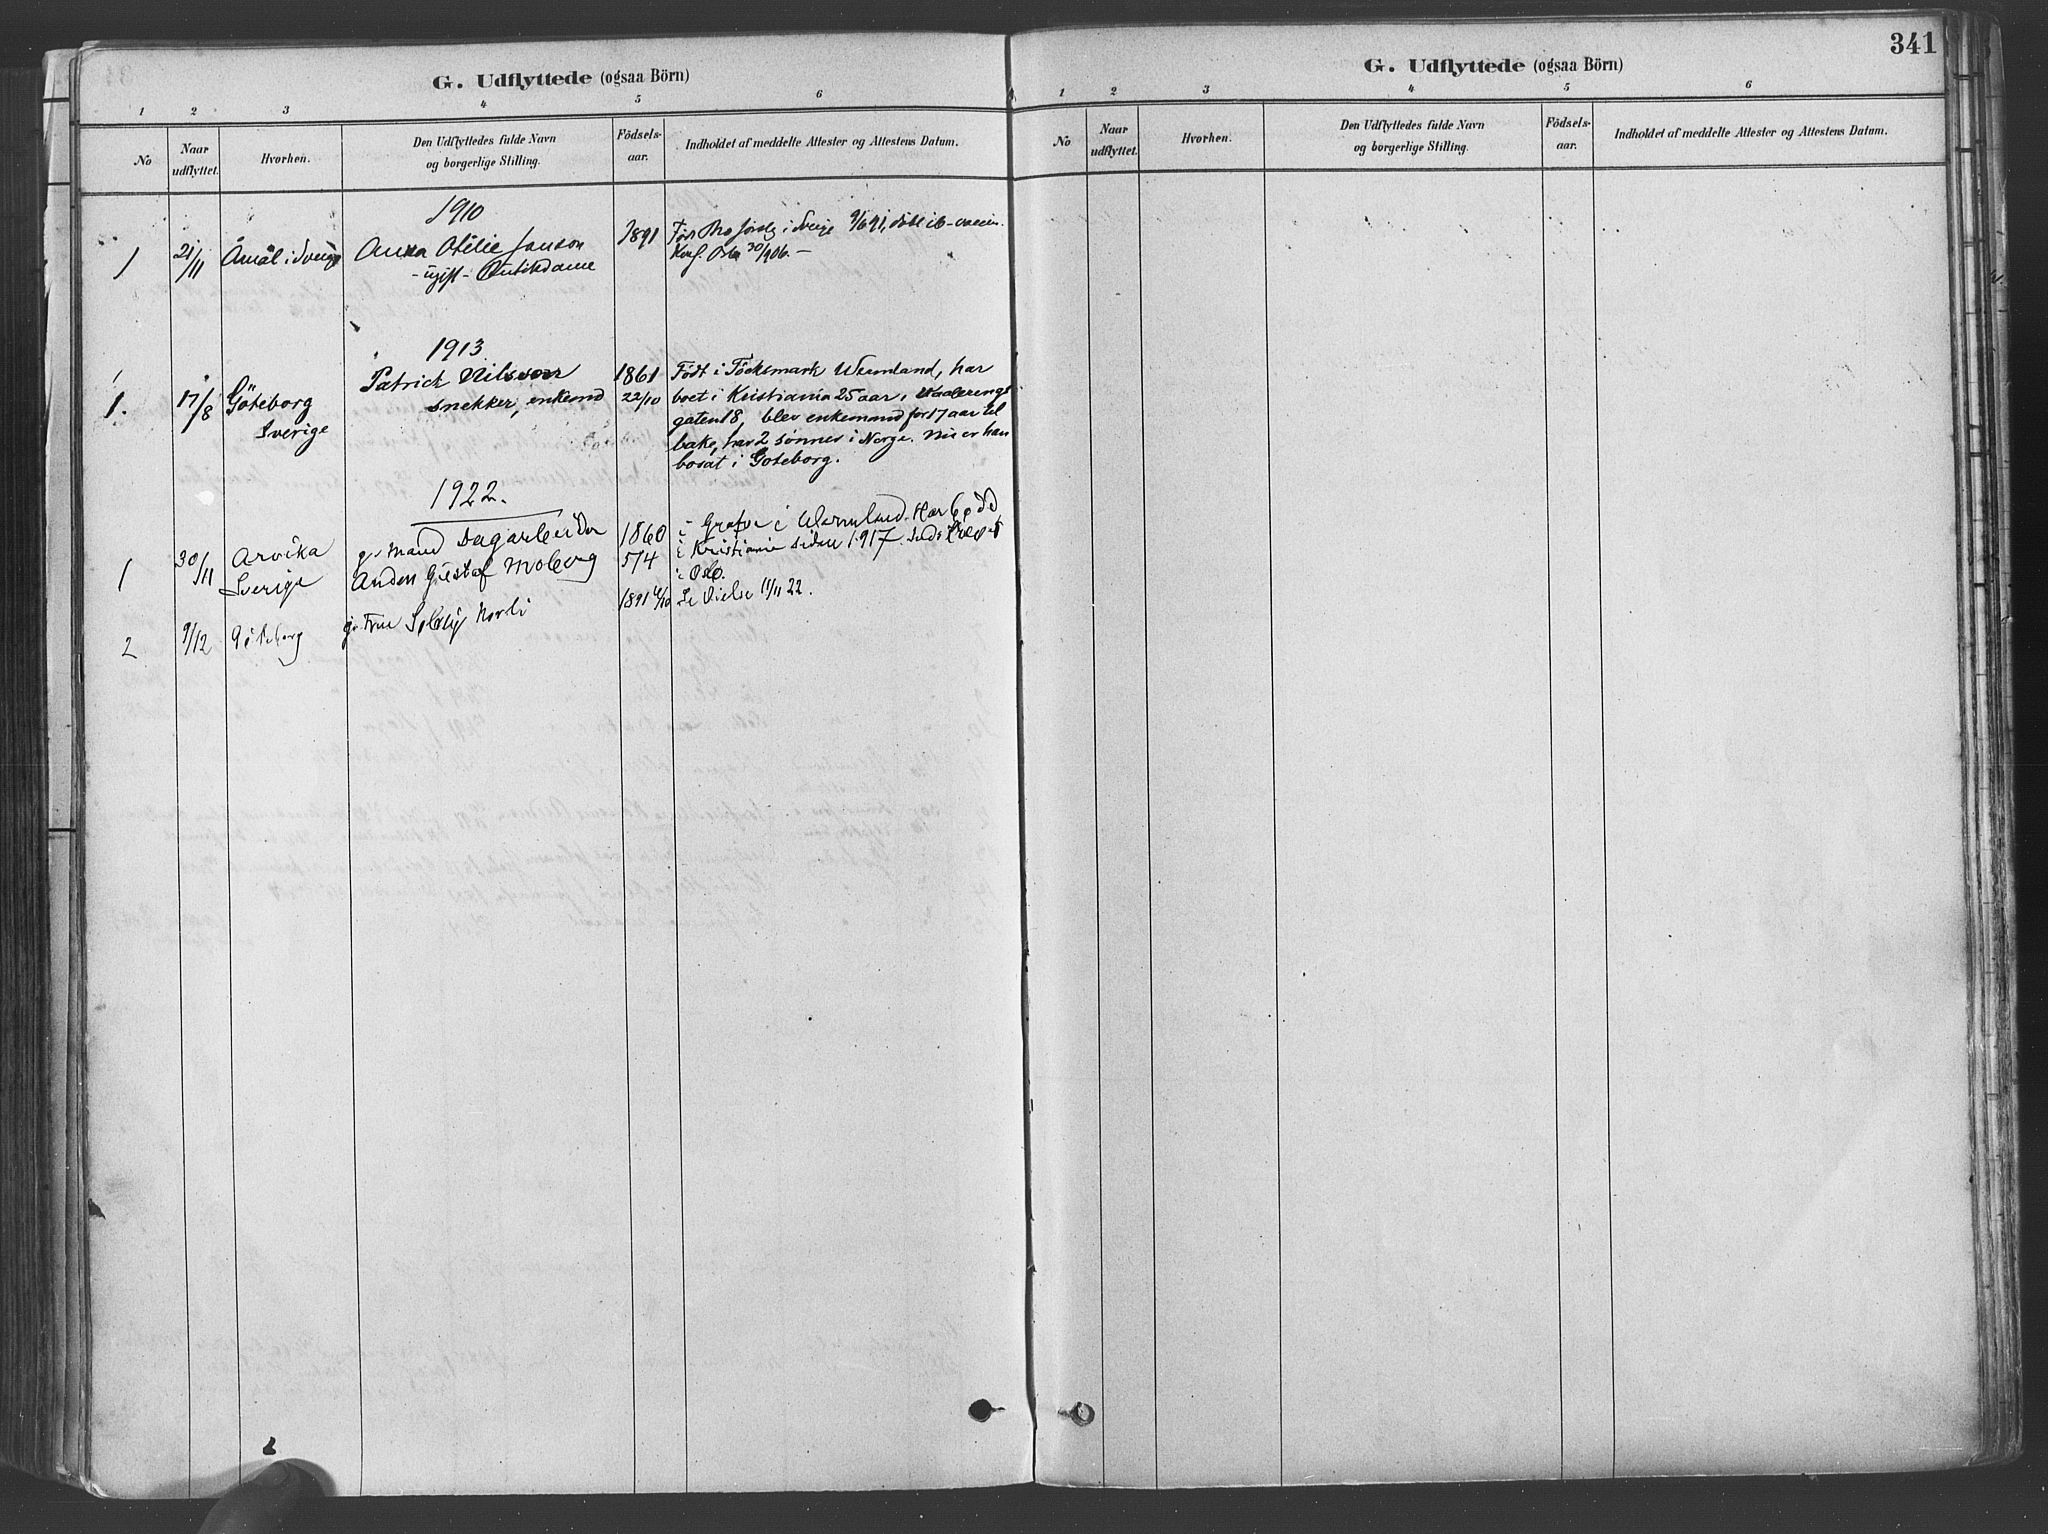 G. Udflyttede (ogsaa Börn)
1 2 3 4 5 6
No
Naar udflyttet.
Hvorhen.
Den Udflyttedes fulde Navn
og borgerlige Stilling.
Födsels-
aar.
Indholdet af meddelte Attester og Attestens Datum.
1910
1 21/11 Åmål i Sverige Anna Otilie Janson 1891 Född i Sverige 9/6 91, døbt ib - vaccin.
- ugift - Butikdame Konf. Oslo 30/ 906. -
1913
1. 17/8 Göteborg Patrick Nilsson 1861 Født i Töcksmark Wermland, har
Sverige snekker, enkemd 22/10 boet i Kristiania 25 aar, Vaalerengs
gaten 18, blev enkemand for 17 aar til
bake, har 2 sønner i Norge. Nu er han
bosat i Göteborg.
1922.
1 30/11 Arvika g. Mand Dagarbeider 1860 i Grafve i Wermland. Har bodd
Sverige Anders Gustaf Moberg 5/4 i Kristiania siden 1917.
i Oslo.
2 9/12 Göteborg g. Frue Solveig Norli 1891 Se Vielse 11/11 22.
341
G. Udflyttede (ogsaa Börn)
1 2 3 4 5 6
No
Naar
udflyttet.
Hvorhen.
Den Udflyttedes fulde Navn
og borgerlige Stilling.
Födsels-
aar.
Indholdet af meddelte Attester og Attestens Datum.